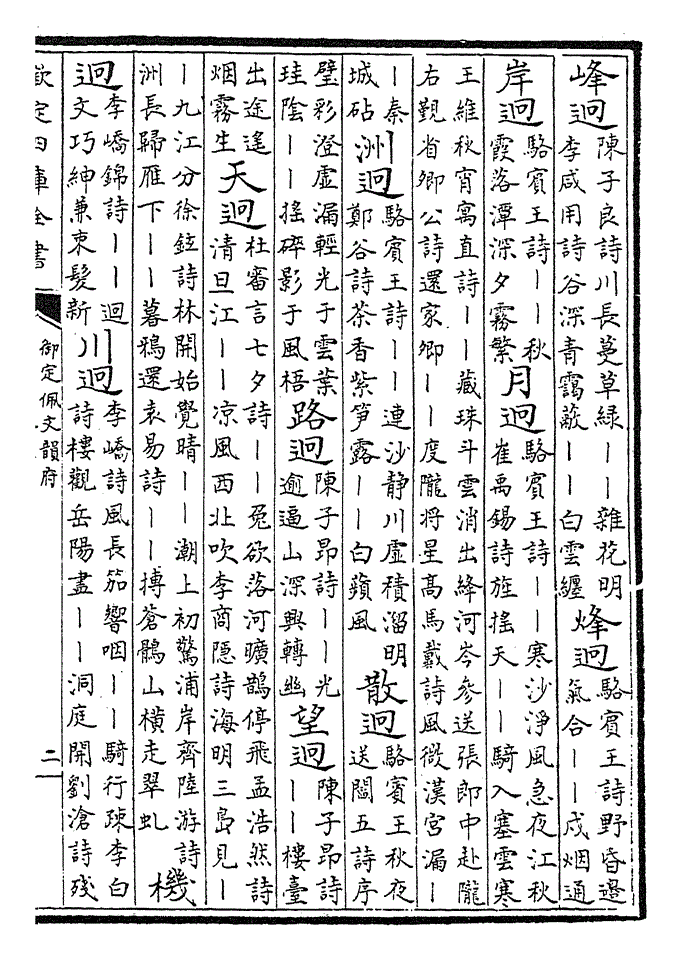 峰迥 陳子良詩川長蔓草綠丨丨雜花明
李咸用詩谷深青靄蔽丨丨白雲纏
烽迥 駱賓王詩野昏邊
氣合丨丨戍烟通
岸迥 駱賓王詩丨丨秋
霞落潭深夕霧繁
月迥 駱賓王詩丨丨寒沙淨風急夜江秋
崔禹錫詩旌搖天丨丨騎入塞雲寒
王維秋宵寓直詩丨丨藏珠斗雲消出絳河岑參送張郎中赴隴
右覲省卿公詩還家卿丨丨度隴将星高馬戴詩風微漢宮漏丨
丨秦
城砧
洲迥 駱賓王詩丨丨連沙静川虚積溜明
鄭谷詩茶香紫笋露丨丨白蘋風
散迥 駱賓王秋夜
送閻五詩序
璧彩澄虚漏輕光于雲葉
珪陰丨丨搖碎影于風梧
路迥 陳子昂詩丨丨光
逾逼山深興轉幽
望迥 陳子昂詩
丨丨樓臺
出途遙
烟霧生
天迥 杜審言七夕詩丨丨兔欲落河曠鵲停飛孟浩然詩
清旦江丨丨凉風西北吹李商隱詩海明三島見丨
丨九江分徐鉉詩林開始覺晴丨丨潮上初驚浦岸齊陸游詩
洲長歸雁下丨丨暮鴉還袁易詩丨丨搏蒼鶻山橫走翠虬
機
迥 李嶠錦詩丨丨迥
文巧紳兼束髮新
川迥 李嶠詩風長笳響咽丨丨騎行疎李白
詩樓觀岳陽盡丨丨洞庭開劉滄詩殘
欽定四庫全書
御定佩文韻府
二